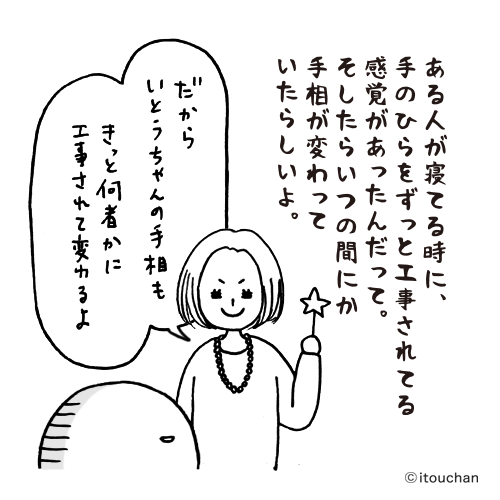 ある人が寝てる時に、
手のひらをずっと工事されてる
感覚があったんだって。
そしたらいつの間にか
手相が変わって
いたらしいよ。
だから
いとうちゃんの手相も
きっと何者かに
工事されて変わるよ
©itouchan